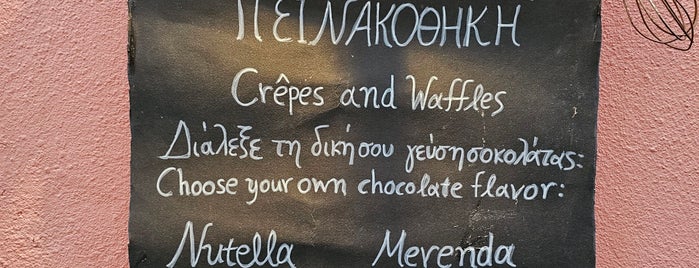 ΠΕΙΝΑΚΟΘΗΚΗ
Crêpes and Waffles
Διάλεξε τη δική σου γεύση σοκολάτας:
Choose your own chocolate flavor:
Nutella Merenda